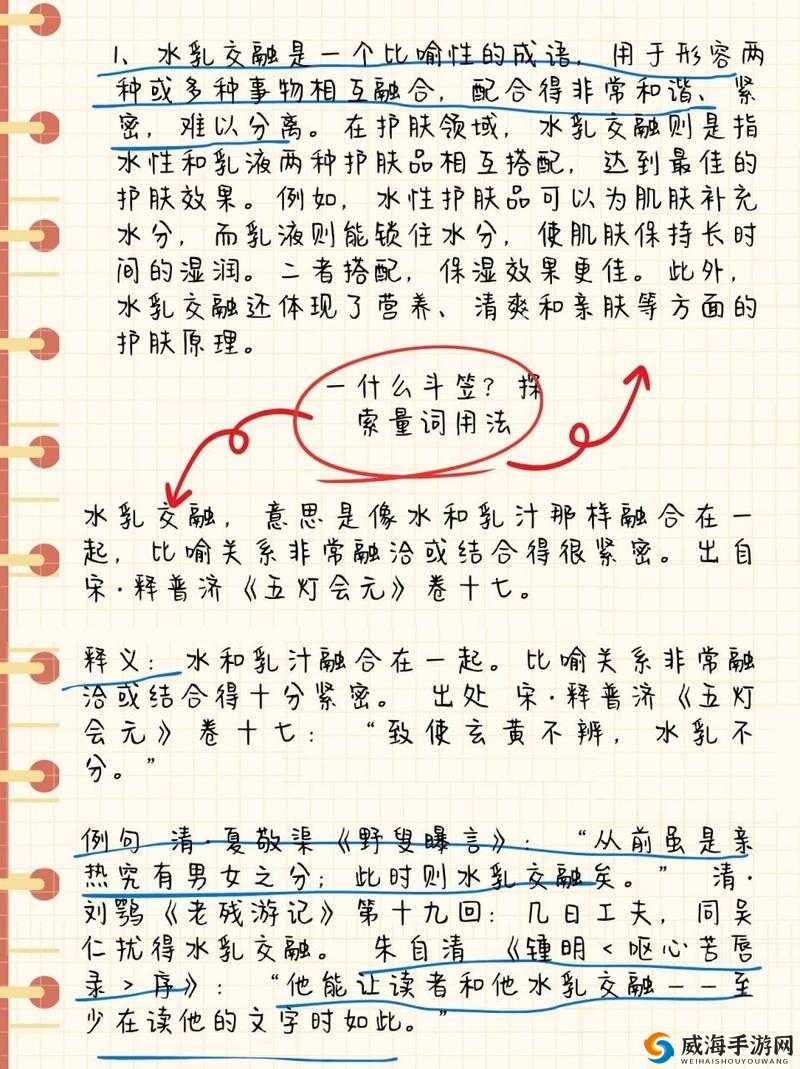 1、水乳交融是一个比喻性的成语，用于形容两
种或多种事物相互融合，配合得非常和谐、紧
密，难以分离。在护肤领域，水乳交融则是指
水性和乳液两种护肤品相互搭配，达到最佳的
护肤效果。例如，水性护肤品可以为肌肤补充
水分，而乳液则能锁住水分，使肌肤保持长时
间的湿润。二者搭配，保湿效果更佳。此外，
水乳交融还体现了营养、清爽和亲肤等方面的
护肤原理。
一什么斗笠？探
索量词用法
水乳交融，意思是像水和乳汁那样融合在一
起，比喻关系非常融洽或结合得很紧密。出自
宋·释普济《五灯会元》卷十七。
释义：水和乳汁融合在一起。比喻关系非常融
洽或结合得十分紧密。 出处 宋·释普济《五灯
会元》卷十七：“致使玄黄不辨，水乳不
分。”
例句 清·夏敬渠《野叟曝言》：“从前虽是亲
热究有男女之分；此时则水乳交融矣。” 清·
刘鹗《老残游记》第十九回：几日工夫，同吴
仁扰得水乳交融。 朱自清 《锺明<呕心苦唇
录>序》：“他能让读者和他水乳交融--至
少在读他的文字时如此。”
威海手游网
WEIHAISHOUYOUWANG